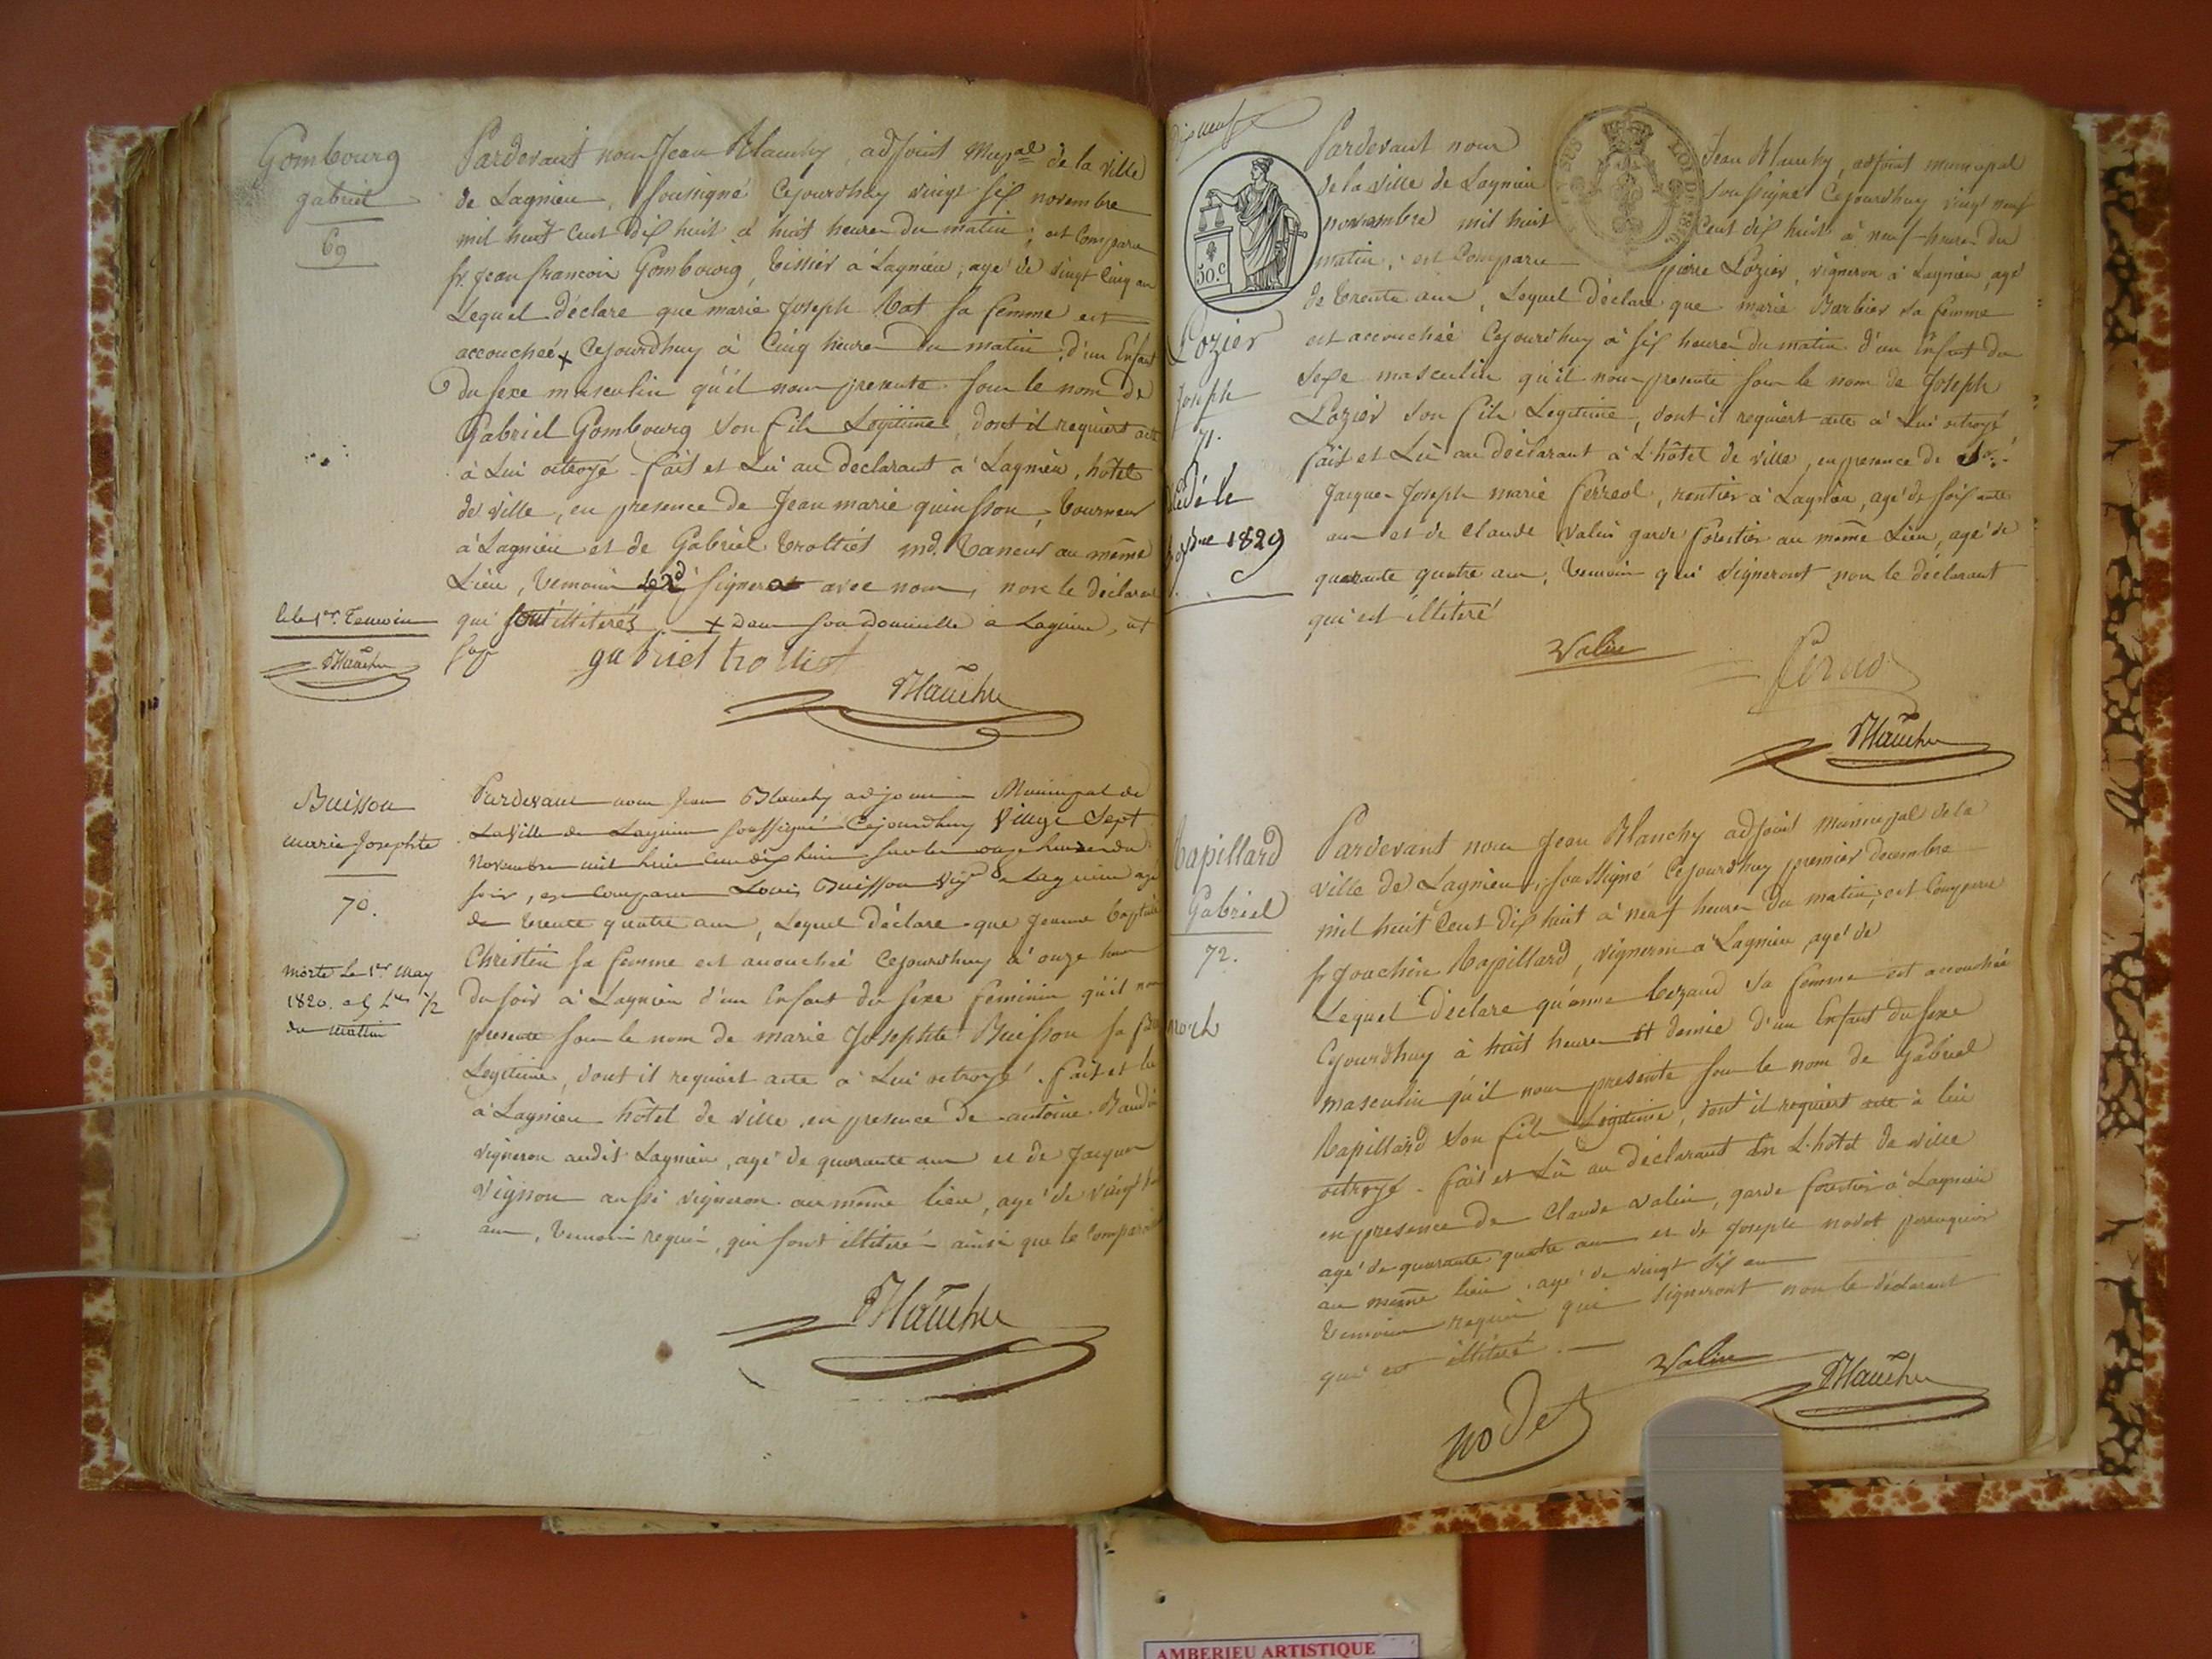 Gombourg
gabriel
69
Pardevant nous Jean Blanchy, adjoint Mupal de la ville
de Lagnieu, soussigné Cejourdhuy vingt six novembre
mil huit Cent dix huit à huit heures du matin, est Comparu
sr. Jean francois Gombourg, tissier à Lagnieu, agé de vingt Cinq ans
Lequel déclare que marie Joseph sa femme est
accouchée x Cejourdhuy à Cinq heures du matin, d'un Enfant
du sexe masculin qu'il nous presente sous le nom de
Gabriel Gombourg son fils Legitime, dont il requiert acte
à Lui octroyé. fait et Lu au declarant à Lagnieu, hôtel
de ville, en presence de Jean marie quinsson, tourneur
à Lagnieu et de Gabriel trolliet md. taneur au même
Lieu, temoins Le 2d signera avec nous, non le déclarant
qui sont illiterés x dans son domicille à Lagnieu, et
le 1er. Temoin
Blanchy
gabriel trolliet
Blanchy
Buisson
marie Josephte
70.
morte le 1er May
1820. a 5 hes 1/2
du mattin
Pardevant nous Jean Blanchy adjoint Municipal de
La Ville de Lagnieu soussigné Cejourdhuy Vingt Sept
Novembre mil huit cent dix huit sur les onze heures du
soir, est Comparu Louis Buisson vign à Lagnieu agé
de trente quatre ans, Lequel déclare que Jeanne baptiste
Christin sa femme est accouchée Cejourdhuy à onze heures
du soir à Lagnieu d'un Enfant du sexe feminin qu'il nous
presente sous le nom de marie Josephte Buisson sa fille
Legitime, dont il requiert acte à Lui octroyé. fait et lu
à Lagnieu hôtel de ville, en presence de antoine
vigneron audit Lagnieu, agé de quarante ans et de Jacques
Vignon aussi vigneron au même lieu, agé de vingt
ans, temoins requis, qui sont illiterés ainsi que le Comparant
Blanchy
dix neuf
50.C
LOI DE 1816
Lozier
Joseph
71.
décédé le
9bre 1829
Pardevant nous Jean Blanchy, adjoint municipal
de la ville de Lagnieu soussigné Cejourdhuy vingt neuf
novembre mil huit Cent dix huit à neuf heures du
matin, est Comparu pierre Lozier, vigneron à Lagnieu, agé
de trente ans, Lequel déclare que marie Barbier sa femme
est accouchée Cejourdhuy à six heures du matin d'un Enfant du
sexe masculin qu'il nous presente sous le nom de Joseph
Lozier son fils Legitime, dont il requiert acte à Lui octroyé
fait et Lu au déclarant à L'hôtel de ville, en presence de Sr.
Jacques Joseph marie ferreol, rentier à Lagnieu, agé de soixante
ans et de Claude Valin garde forestier au même Lieu, agé de
quarante quatre ans, temoins qui signeront non le déclarant
qui est illiteré
Valin
Blanchy
Rapillard
Gabriel
72.
mort
Pardevant nous Jean Blanchy adjoint municipal de la
ville de Lagnieu, soussigné Cejourdhuy premier decembre
mil huit Cent dix huit à neuf heures du matin, est Comparu
sr Joachin Rapillard, vigneron à Lagnieu, agé de
Lequel déclare qu'anne sa femme est accouchée
Cejourdhuy à huit heures et demie d'un Enfant du sexe
masculin qu'il nous presente sous le nom de Gabriel
Rapillard son fils Legitime, dont il requiert acte à lui
octroyé. fait et Lu au déclarant en L'hôtel de ville
en presence de Claude Valin, garde forestier à Lagnieu
agé de quarante quatre ans et de Joseph nodet perruquier
au même lieu, agé de vingt six ans
temoins requis qui signeront non le déclarant
qui est illiteré.
Valin
nodet
Blanchy
AMBERIEU ARTISTIQUE